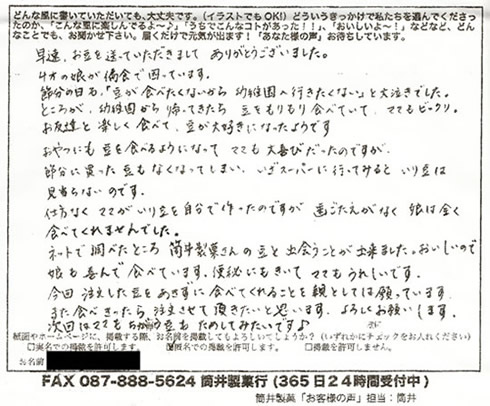 どんな風に書いていただいても、大丈夫です。(イラストでもOK!)どういうきっかけで私たちを選んでくださっ
たのか、「こんな風に楽しんでるよ〜う」「うちでこんなコトがあった!」、「おいしいよ〜!」などなど、どん
なことでも、お聞かせ下さい。届くだけで元気が出ます!「あなた様の声」お待ちしています。
早速、お豆を送っていただきまして ありがとうございました。
4才の娘が偏食で困っています。
節分の日も、「豆が食べたくないから 幼稚園へ行きたくない」と大泣きでした。
ところが、幼稚園から 帰ってきたら 豆をもりもり食べていて、ママもビックリ。
お友達と 楽しく食べて、豆が大好きになったようです
おやつにも 豆を食べるようになって ママも 大喜びだったのですが、
節分に買った豆も なくなってしまい、いざスーパーに行ってみると いり豆は
見当らないのです。
仕方なく ママがいり豆を自分で作ったのですが 歯ごたえがなく 娘は全く
食べてくれませんでした。
ネットで調べたところ 筒井製菓さんの豆と出会うことが出来ました。おいしいので
娘も喜んで食べています。便秘にもきいて ママもうれしいです。
今回 注文した豆を あきずに食べてくれることを親としては願っています。
また食べきったら 注文させて頂きたいと思います。よろしくお願いします。
次回はママも ちがう豆も ためしてみたいです♪
紙面やホームページに、掲載する際、お名前を掲載してもよろしいでしょうか?(いずれかにチェックをお入れください)
□実名での掲載を許可します。 ☑匿名での掲載を許可します。 □掲載を許可しません。
お名前
FAX 087-888-5624 筒井製菓行(365日24時間受付中)
筒井製菓「お客様の声」担当:筒井